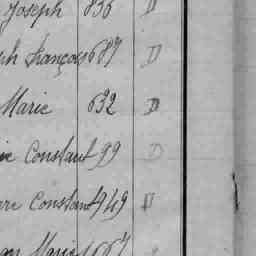 Joseph 836 D
ph François 687 D
Marie 632 D
Constant 99 D
re Constant 949 D
Marie